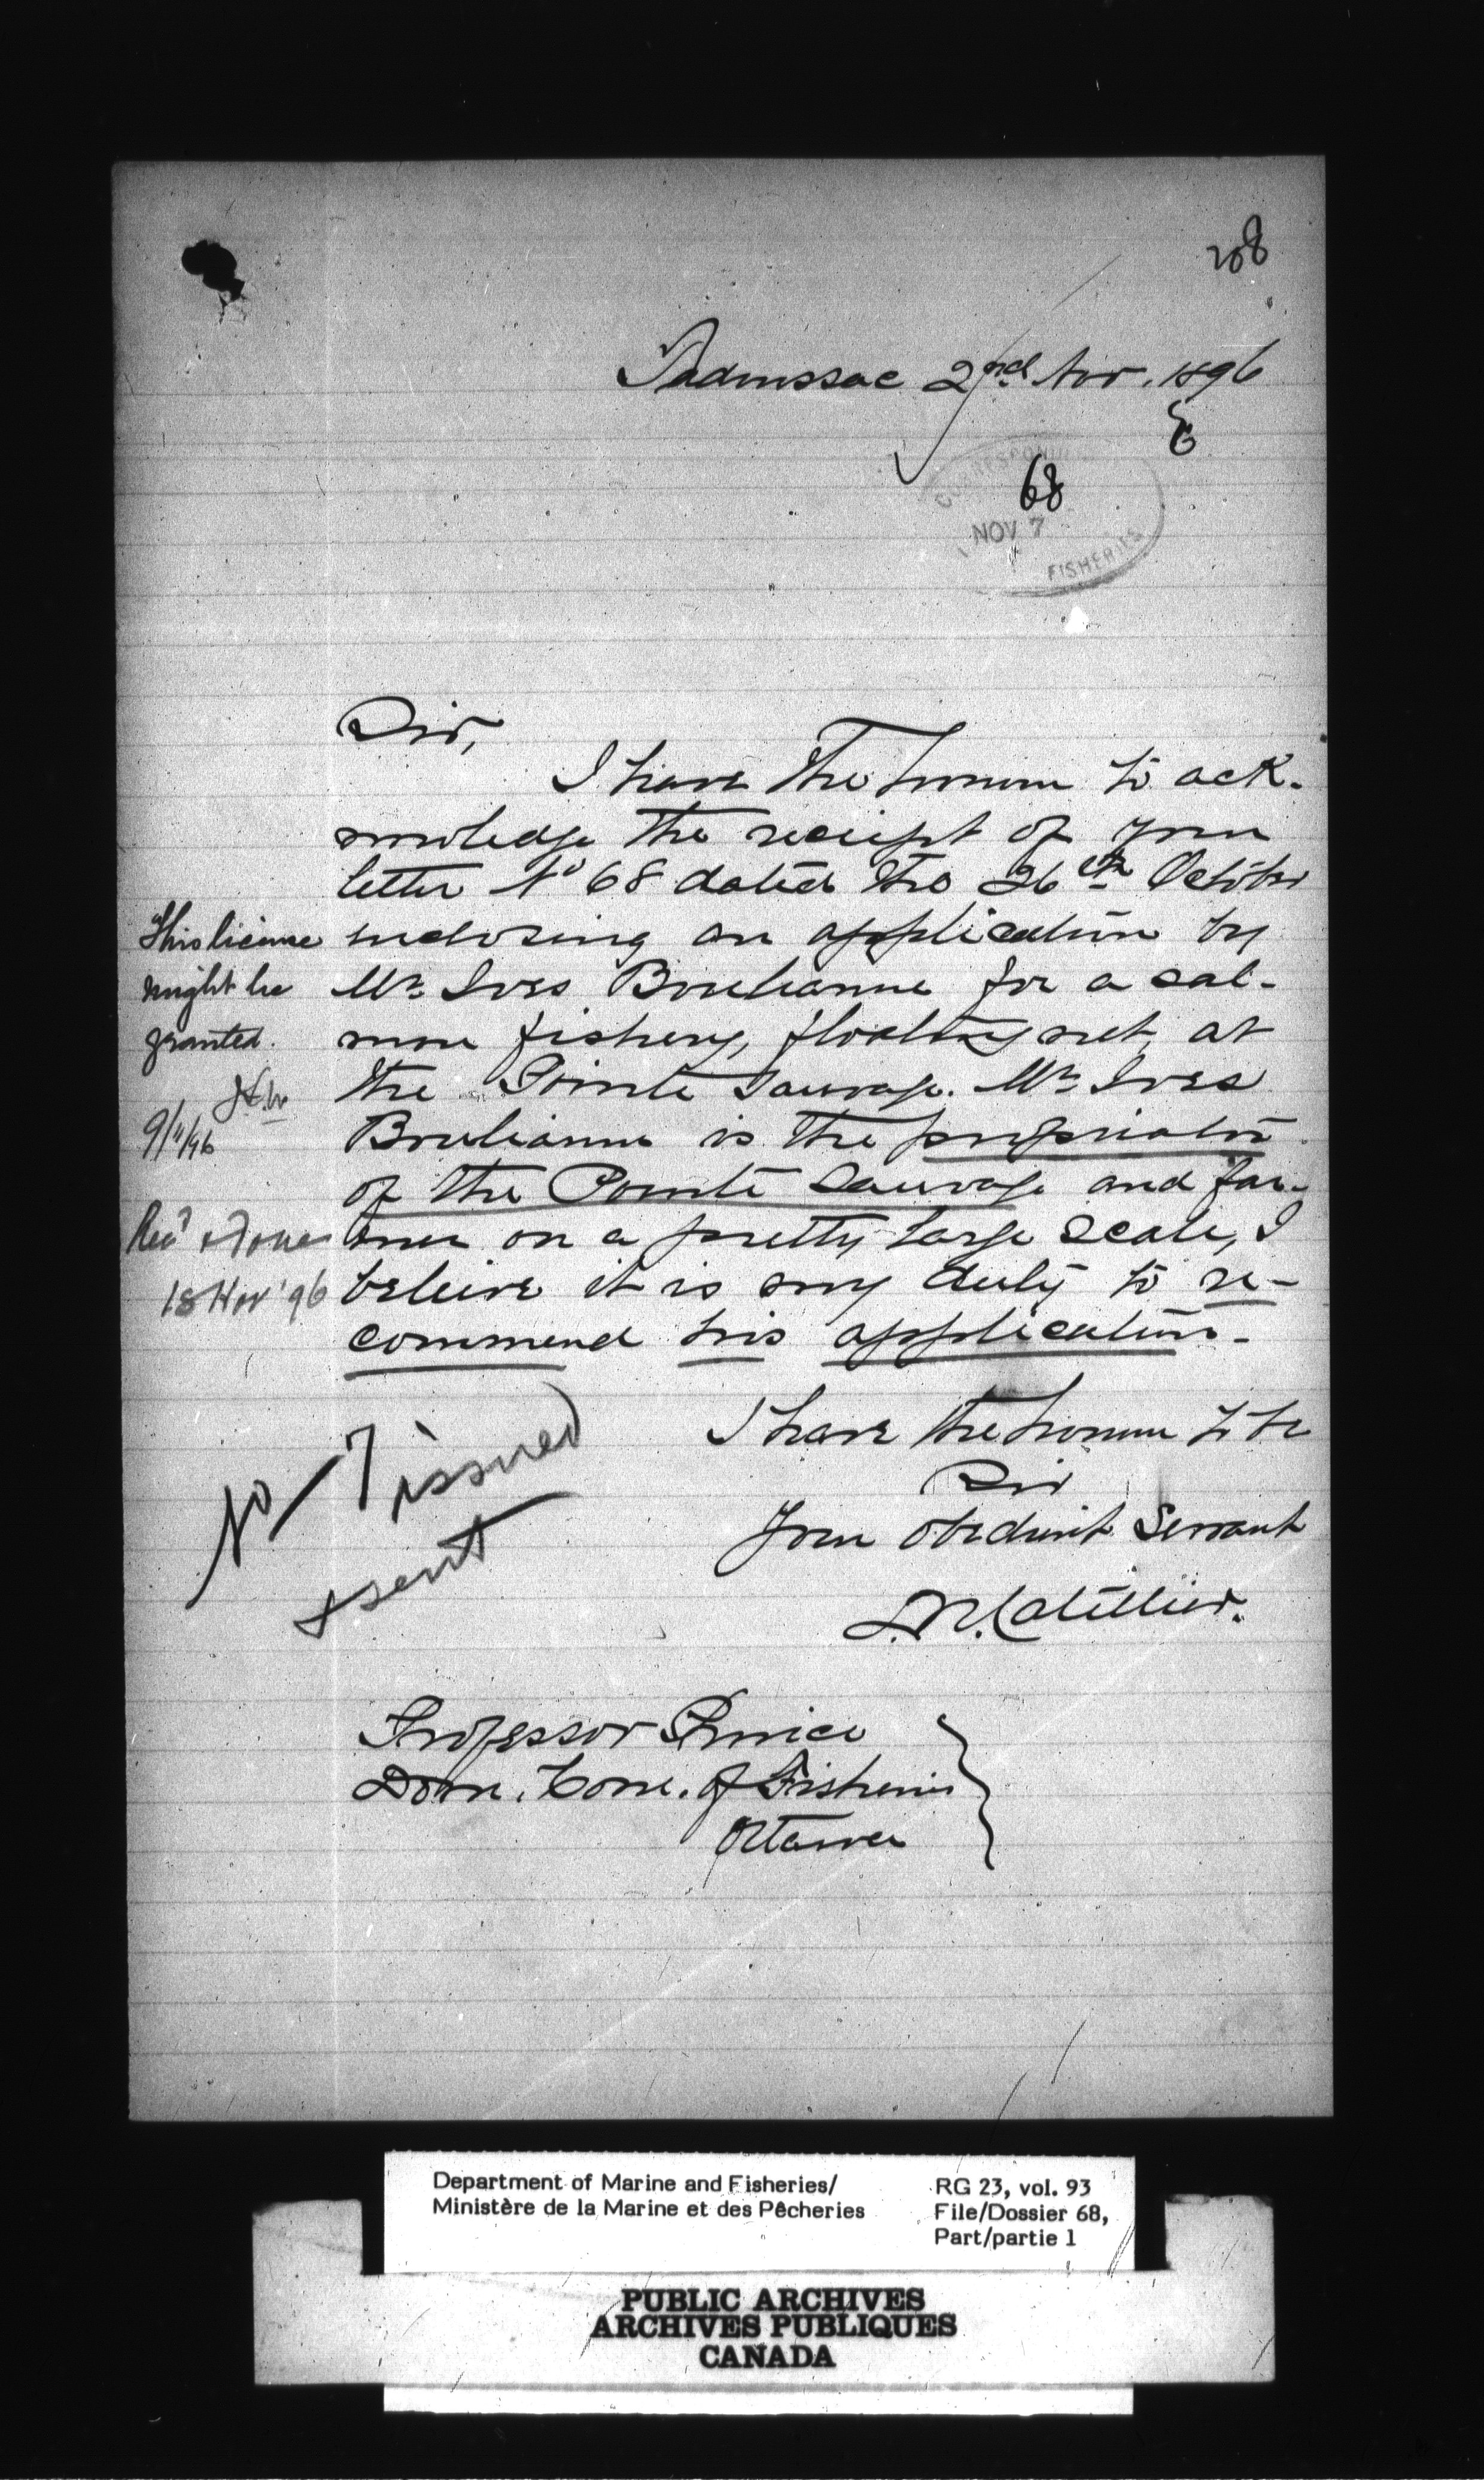 208
Tadoussac 2nd Nov. 1896
68
CORRESPOND
NOV 7
FISHERIES
Sir,
I have the honour to ack-
nowledge the reciept of your
letter No 68 dated the 26th October
enclosing an application by
Mr. Ives Boulianne for a sal-
mon fishery, floating net, at
the Pointe Sauvage. Mr. Ives
Boulianne is the proprietor
of the Pointe Sauvage and far-
mer on a pretty large scale, I
beleive it is my duty to re-
commend his application.
This license
might be
granted.
9/11/96
18 Nov '96
No 7 issued
& sent
I have the honour to be
Sir
Your obedient Servant
L.N. Catellier.
Professor Prince
Dom. Com. of Fisheries
Ottawa
Department of Marine and Fisheries/
Ministère de la Marine et des Pêcheries
RG 23, vol. 93
File/Dossier 68,
Part/partie 1
PUBLIC ARCHIVES
ARCHIVES PUBLIQUES
CANADA